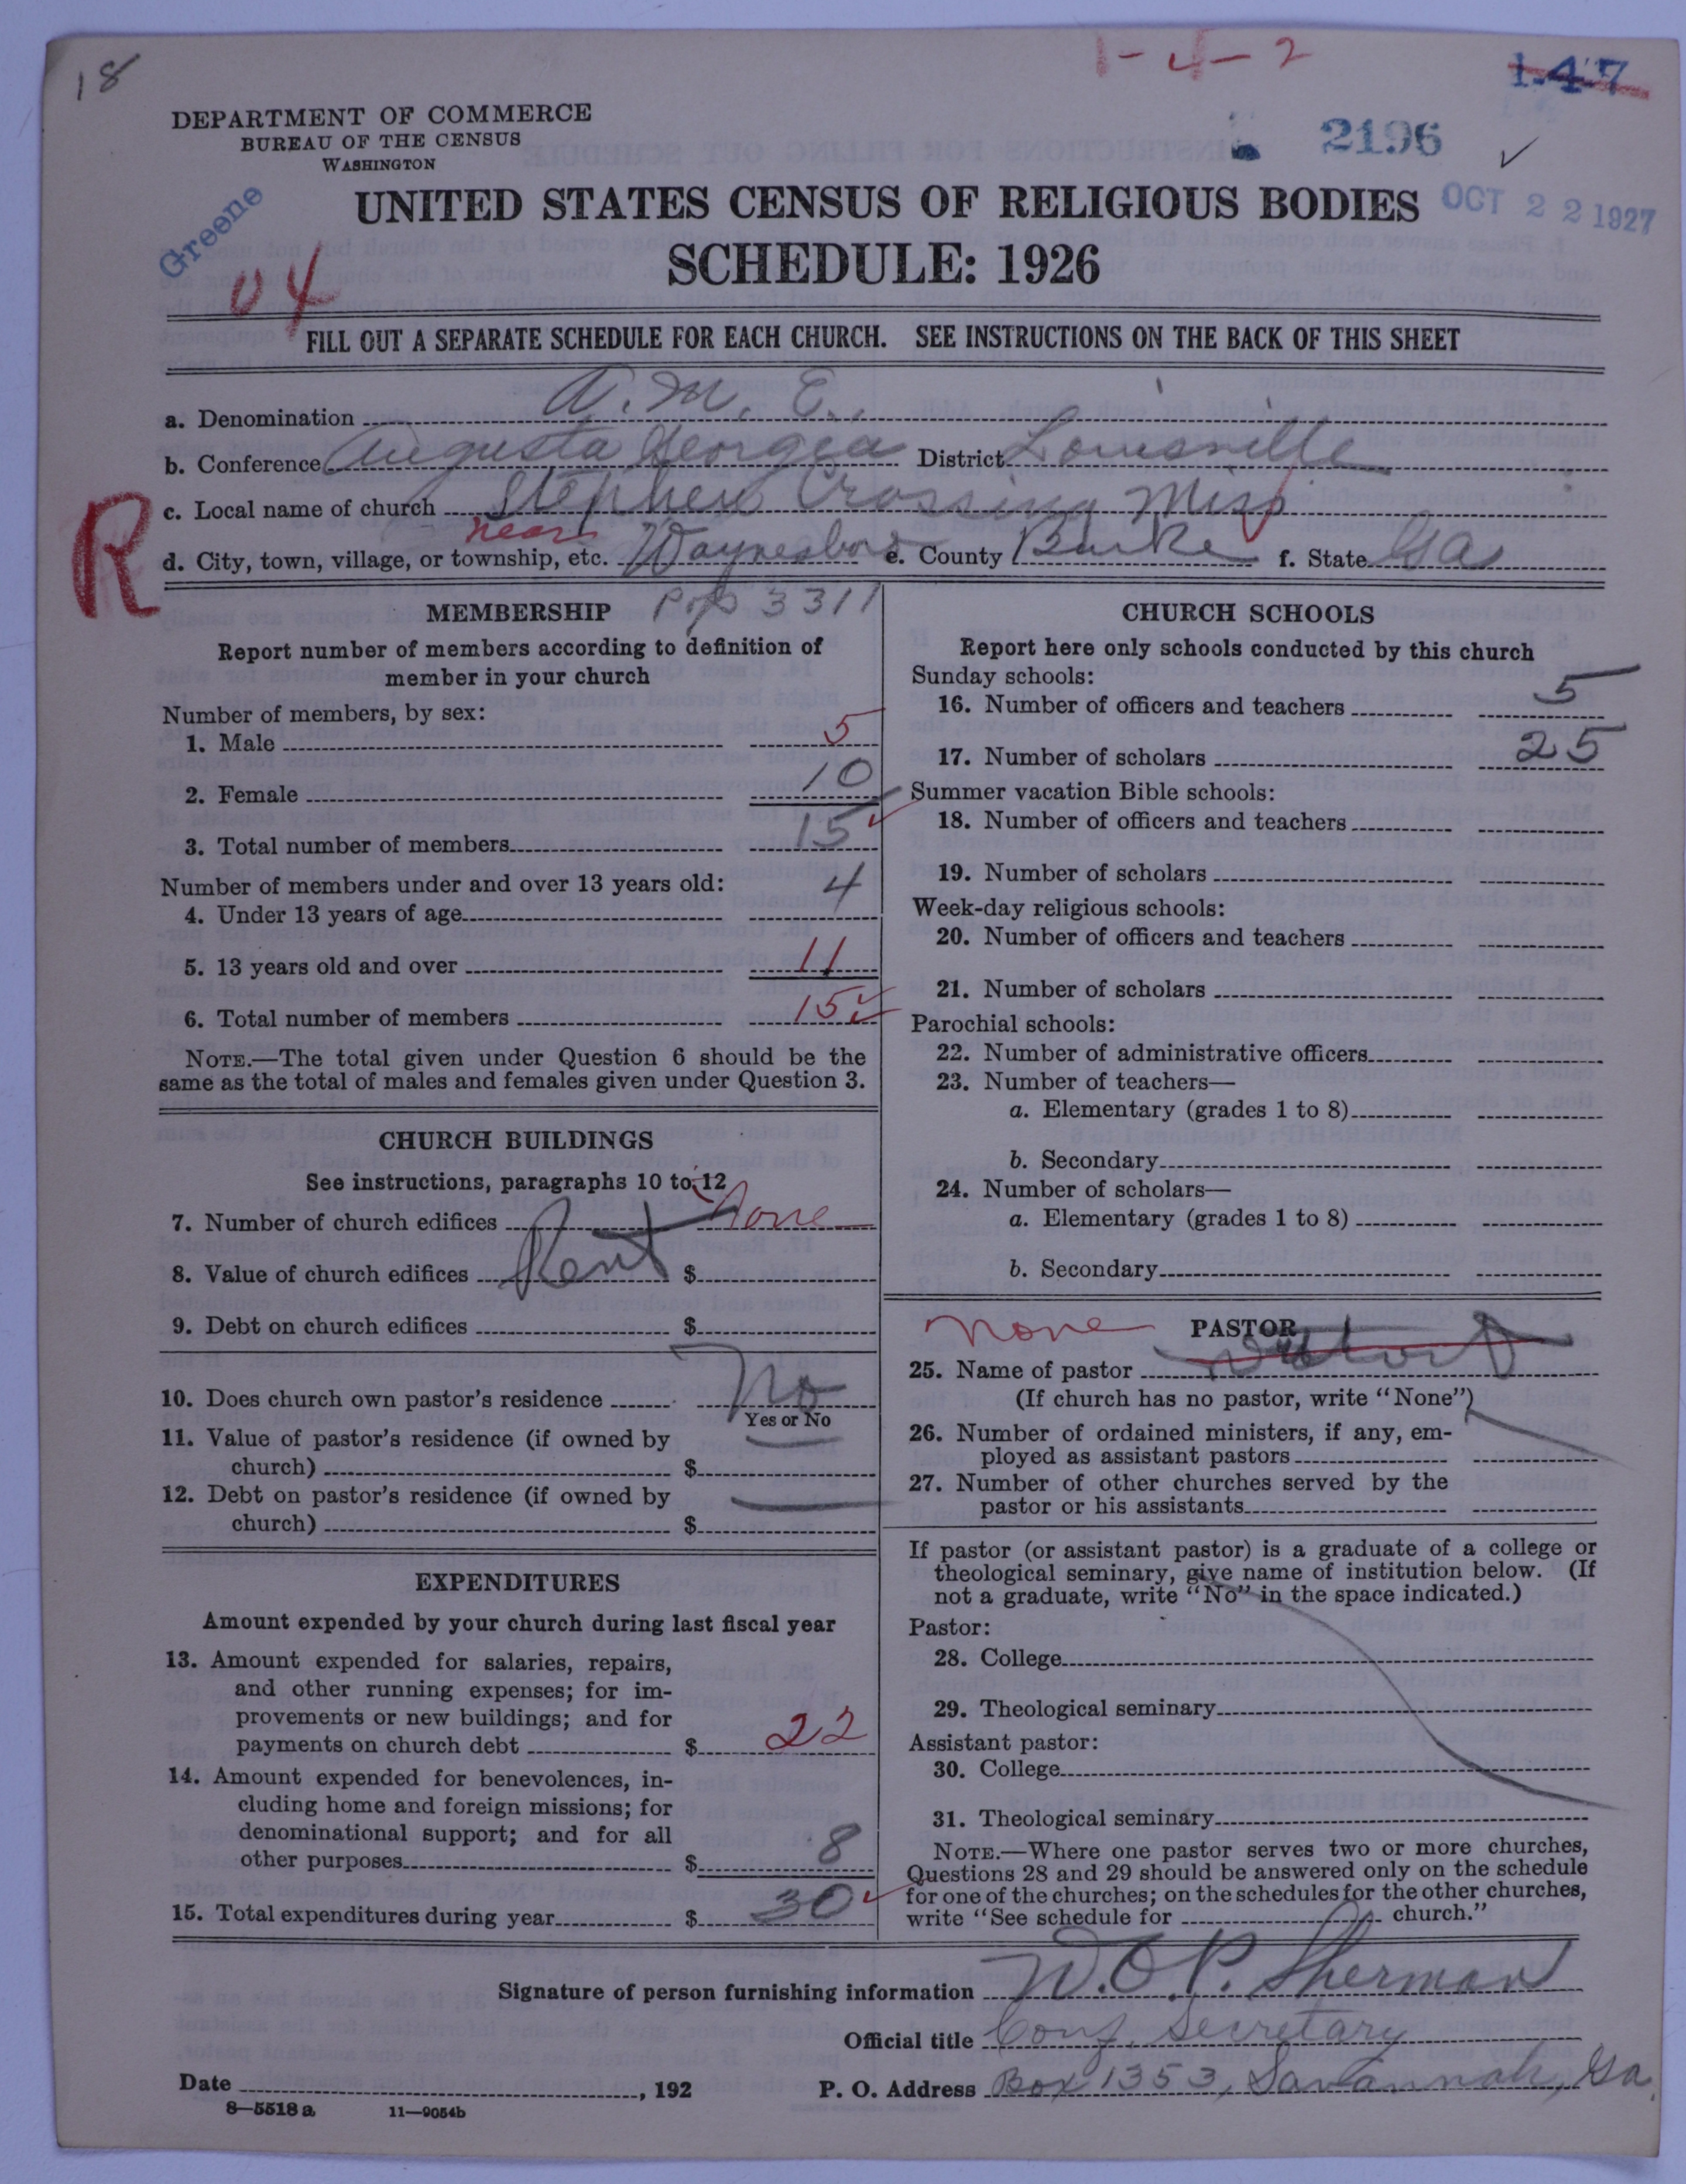 18
1-4-2
1-47
DEPARTMENT OF COMMERCE
BUREAU OF THE CENSUS
WASHINGTON
2196
OCT 22 1927
Greene
UNITED STATES CENSUS OF RELIGIOUS BODIES
SCHEDULE: 1926
04
FILL OUT A SEPARATE SCHEDULE FOR EACH CHURCH. SEE INSTRUCTIONS ON THE BACK OF THIS SHEET
a. Denomination A. M. E.
b. Conference Augusta Georgia District Louisville
c. Local name of church Stephen Crossing Miss
R
near
d. City, town, village, or township, etc. Waynesboro e. County Burke f. State Ga
MEMBERSHIP Pop 3311
Report number of members according to definition of
member in your church
Number of members, by sex:
1. Male 5
2. Female 10
3. Total number of members 15
Number of members under and over 13 years old:
4. Under 13 years of age 4
5. 13 years old and over 11
6. Total number of members 15
NOTE.—The total given under Question 6 should be the
same as the total of males and females given under Question 3.
CHURCH BUILDINGS
See instructions, paragraphs 10 to 12
7. Number of church edifices none
8. Value of church edifices Rent $
9. Debt on church edifices $
10. Does church own pastor's residence No
Yes or No
11. Value of pastor's residence (if owned by
church) $
12. Debt on pastor's residence (if owned by
church) $
EXPENDITURES
Amount expended by your church during last fiscal year
13. Amount expended for salaries, repairs,
and other running expenses; for im-
provements or new buildings; and for
payments on church debt $ 22
14. Amount expended for benevolences, in-
cluding home and foreign missions; for
denominational support; and for all
other purposes $ 8
15. Total expenditures during year $ 30
CHURCH SCHOOLS
Report here only schools conducted by this church
Sunday schools:
16. Number of officers and teachers 5
17. Number of scholars 25
Summer vacation Bible schools:
18. Number of officers and teachers
19. Number of scholars
Week-day religious schools:
20. Number of officers and teachers
21. Number of scholars
Parochial schools:
22. Number of administrative officers
23. Number of teachers—
a. Elementary (grades 1 to 8)
b. Secondary
24. Number of scholars—
a. Elementary (grades 1 to 8)
b. Secondary
none PASTOR
25. Name of pastor
(If church has no pastor, write "None")
26. Number of ordained ministers, if any, em-
ployed as assistant pastors
27. Number of other churches served by the
pastor or his assistants
If pastor (or assistant pastor) is a graduate of a college or
theological seminary, give name of institution below. (If
not a graduate, write "No" in the space indicated.)
Pastor:
28. College
29. Theological seminary
Assistant pastor:
30. College
31. Theological seminary
NOTE.—Where one pastor serves two or more churches,
Questions 28 and 29 should be answered only on the schedule
for one of the churches; on the schedules for the other churches,
write "See schedule for church."
Signature of person furnishing information W. O. P. Sherman
Official title Conf. Secretary
Date , 192 P. O. Address Box 1353, Savannah, Ga.
8—5518 a 11—9054b